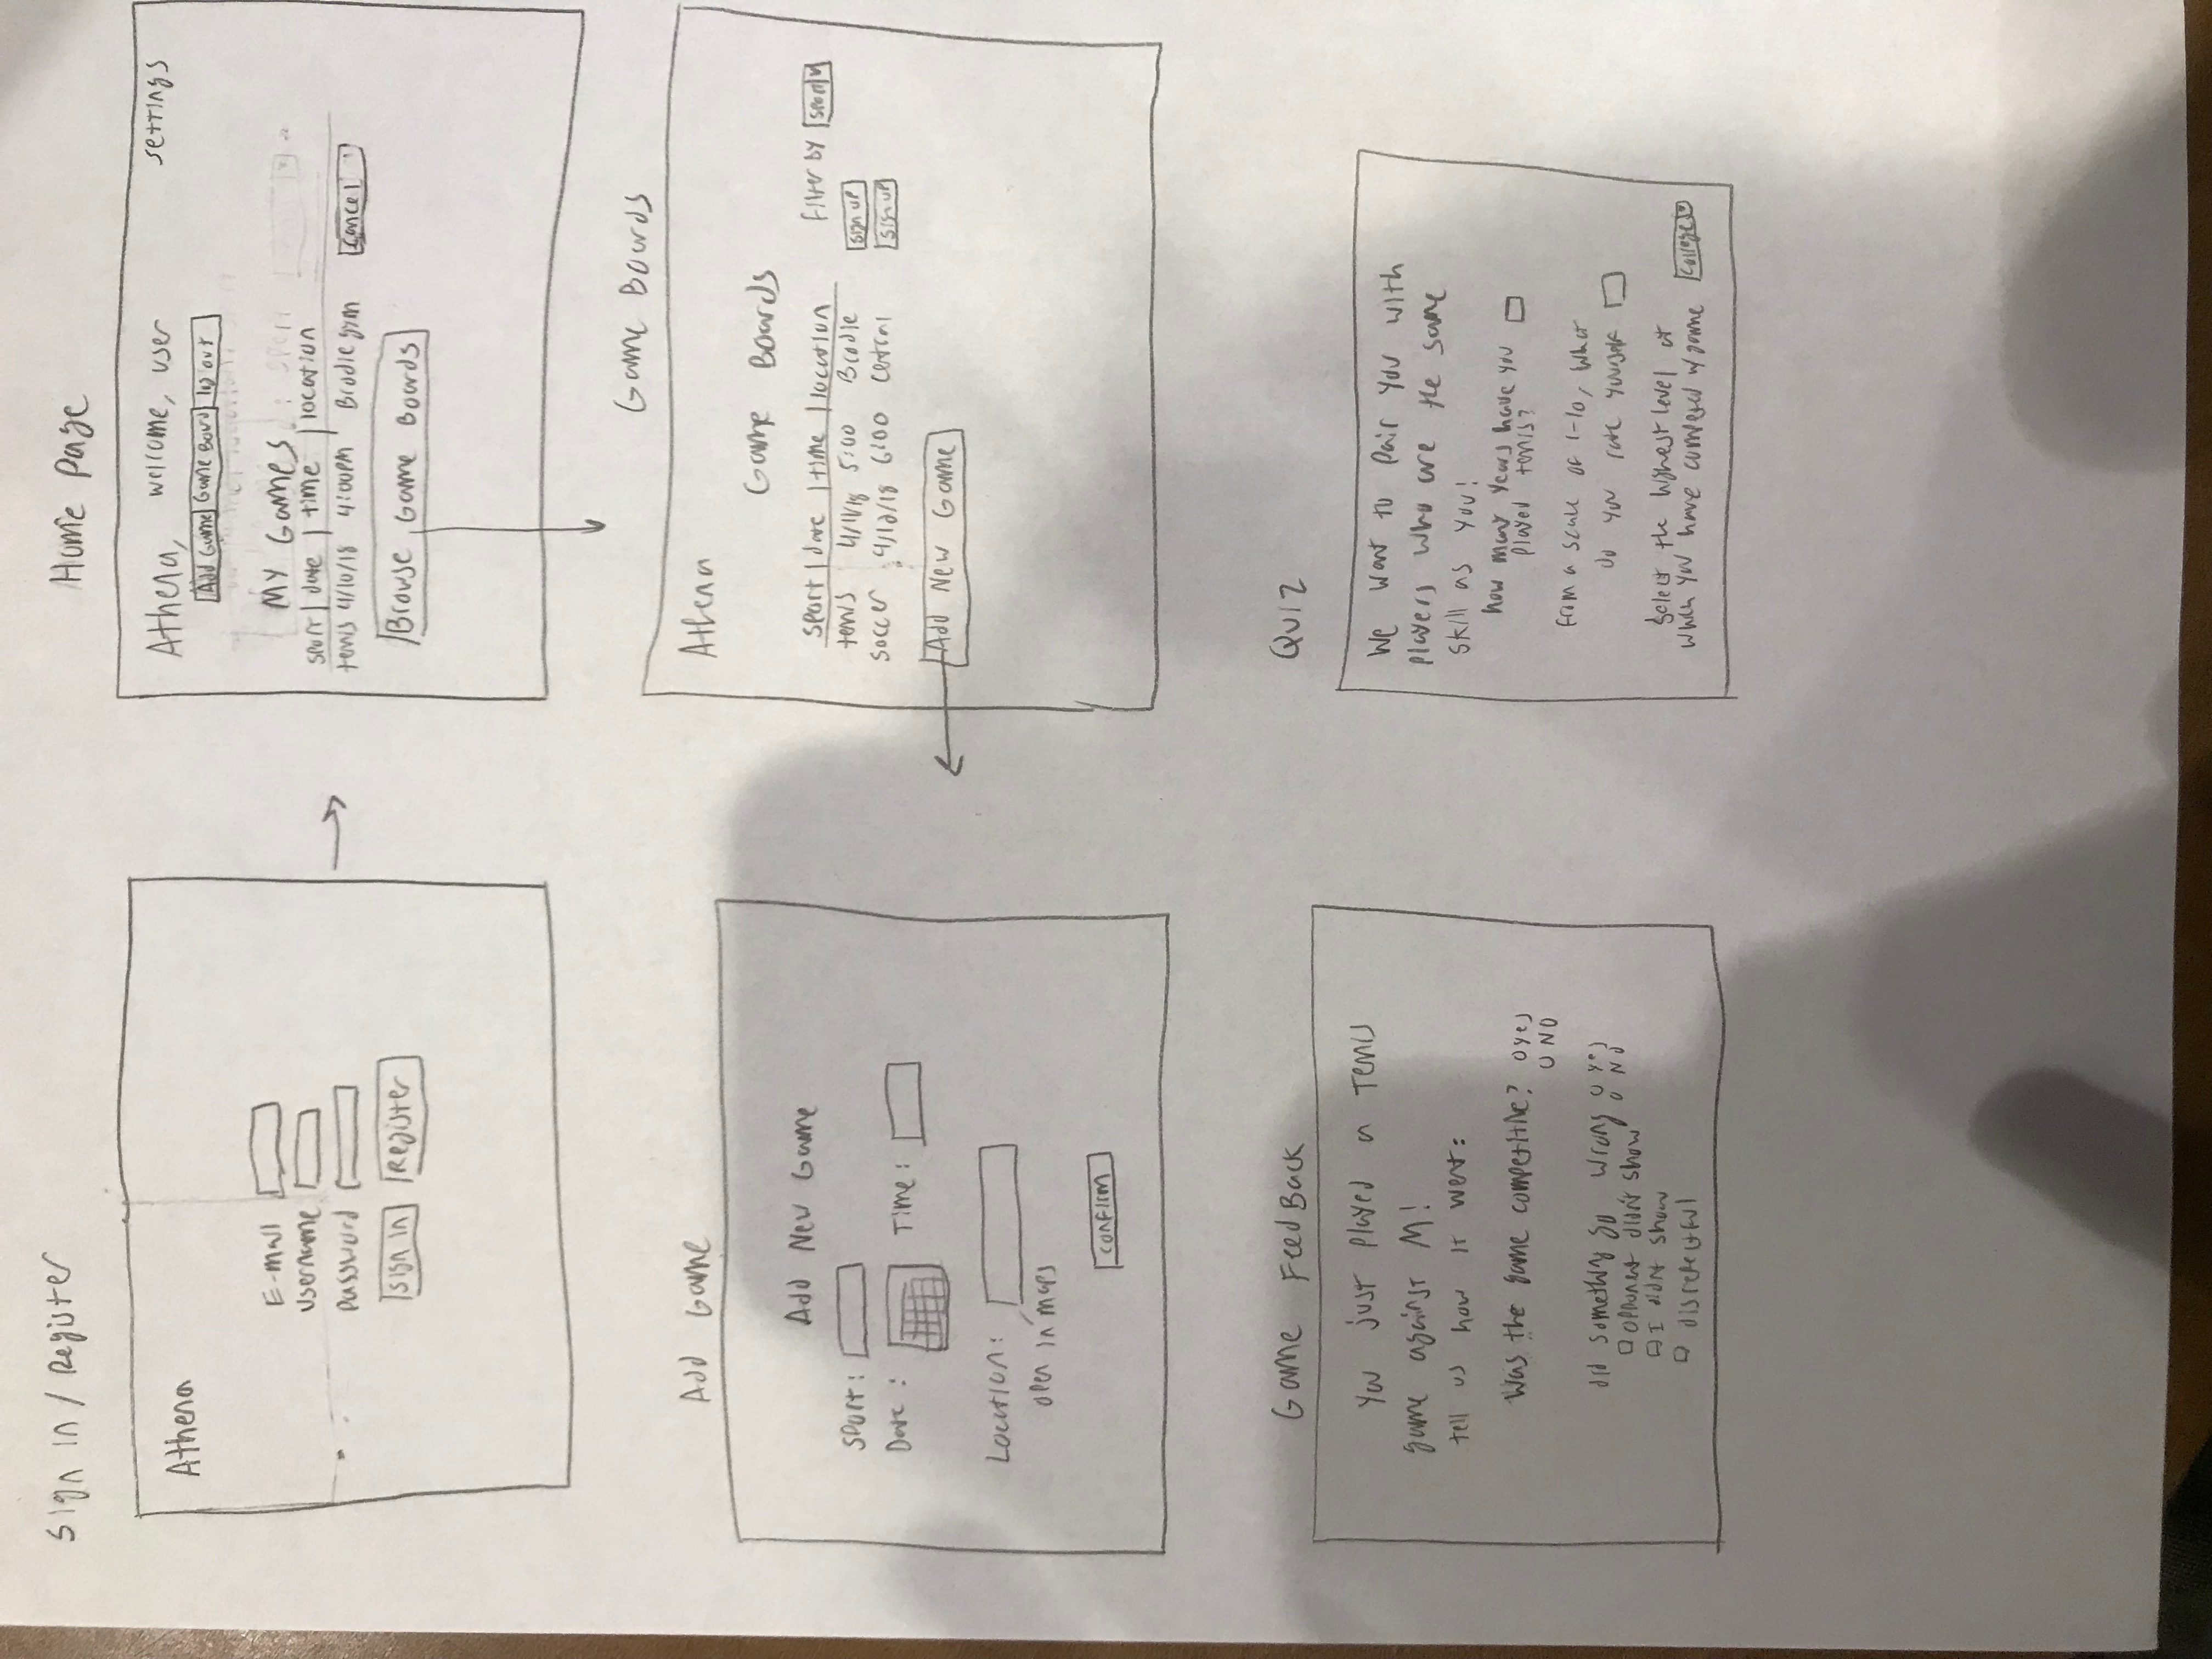 Sign in / Register
Athena
E-mail
username
password
sign in
Register
Home Page
Athena, welcome, user
settings
Add Game
Game Board
log out
My Games
sport | date | time | location
tenis 4/10/18 4:00PM Brodie gym
cancel
Browse Game Boards
Game Boards
Athena
Game Boards
sport | date | time | location
Filter by
sport
tenis 4/11/18 5:00 Brodie
sign up
soccer 4/12/18 6:00 central
sign up
Add New Game
Add Game
Add New Game
sport:
Date:
Time:
Location:
open in maps
confirm
Game FeedBack
You just played a Tenis
game against M!
tell us how it went:
Was the game competitive? Yes
NO
did something go wrong Yes
NO
opponent didn't show
I didnt show
disrepectful
Quiz
We want to pair you with
players who are the same
skill as you!
how many years have you
played tenis?
from a scale of 1-10, what
do you rate yourself
Select the highest level at
which you have competed w/ game
college